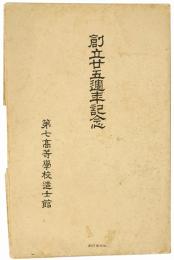 創立廿五週年記念
第七高等學校造士館